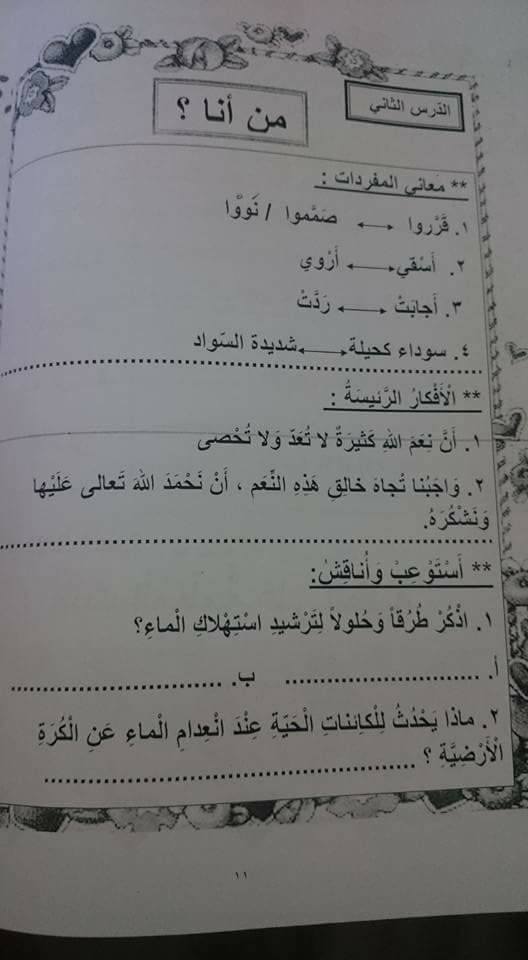 الدرس الثاني
من أنا ؟
** معاني المفردات :
١. قَرَّروا ←→ صَمَّموا / نَوَوْا
٢. أَسْقي ←→ أَرْوي
٣. أَجابَتْ ←→ رَدَّتْ
٤. سوداء كحيلة ←→ شديدة السَواد
** الْأَفْكارُ الرَّئيسَةُ :
١. أَنَّ نِعَمَ اللهِ كَثيرَةٌ لا تُعَدّ وَلا تُحْصى
٢. وَاجِبُنا تُجاهَ خالِقِ هَذِهِ النِّعَم ، أَنْ نَحْمَدَ اللهَ تَعالى عَلَيْها
وَنَشْكُرَهُ.
** أَسْتَوْعِبُ وَأُناقِشُ:
١. اذْكُرْ طُرُقاً وَحُلولاً لِتَرْشيدِ اسْتِهْلاكِ الْماءِ؟
أ. ........................ ب. ........................
٢. ماذا يَحْدُثُ لِلْكائِناتِ الْحَيَّةِ عِنْدَ انْعِدامِ الْماءِ عَنِ الْكُرَةِ
الْأَرْضِيَّةِ ؟ ..........................................
١١